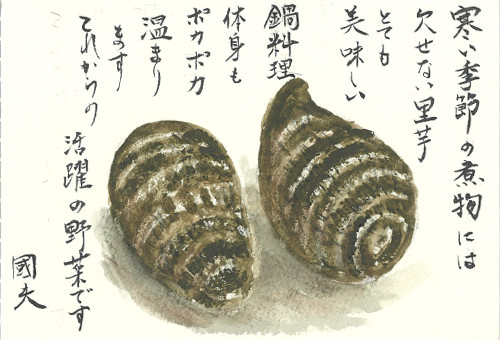 寒い季節の煮物には
欠せない里芋
とても
美味しい
鍋料理
体身も
ポカポカ
温まり
ます
これからの
活躍の野菜です
國夫